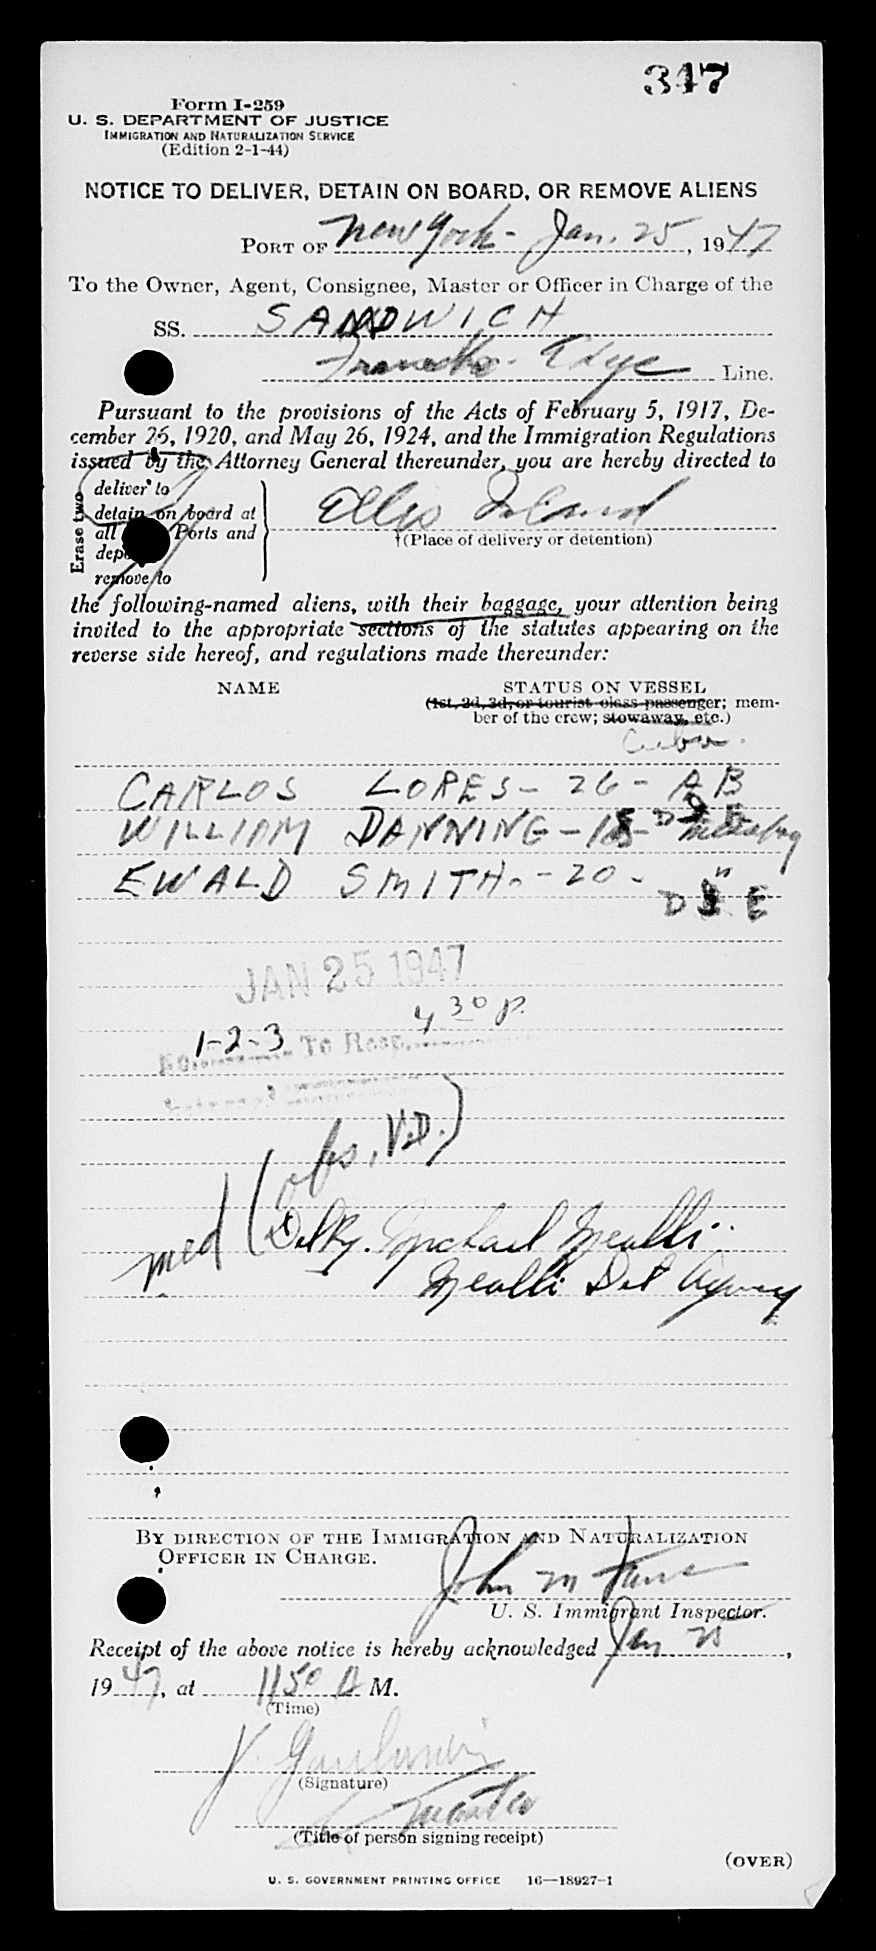 347
Form I-259
U. S. DEPARTMENT OF JUSTICE
IMMIGRATION AND NATURALIZATION SERVICE
(Edition 2-1-44)
NOTICE TO DELIVER, DETAIN ON BOARD, OR REMOVE ALIENS
PORT OF New York - Jan. 25, 1947
To the Owner, Agent, Consignee, Master or Officer in Charge of the
SS. SANDWICH
Edye Line.
Pursuant to the provisions of the Acts of February 5, 1917, De-
cember 26, 1920, and May 26, 1924, and the Immigration Regulations
issued by the Attorney General thereunder, you are hereby directed to
Erase two
deliver to
detain on board at
all Ports and
remove to
Ellis Island
†(Place of delivery or detention)
the following-named aliens, with their baggage, your attention being
invited to the appropriate sections of the statutes appearing on the
reverse side hereof, and regulations made thereunder:
NAME STATUS ON VESSEL
(1st, 2d, 3d, or tourist class passenger; mem-
ber of the crew; stowaway, etc.)
Cuba.
CARLOS LORES - 26 - AB
WILLIAM DANNING - 18 - Messboy
EWALD SMITH. - 20 - "
D S E
JAN 25 1947
4 30 P.
1-2-3
To Hosp.
med (obs. V.D.)
Delky. Michael Mealli
Mealli Det Agency
BY DIRECTION OF THE IMMIGRATION AND NATURALIZATION
OFFICER IN CHARGE.
John M
U. S. Immigrant Inspector.
Receipt of the above notice is hereby acknowledged Jan 25,
1947, at 1150 A M.
(Time)
(Signature)
Master
(Title of person signing receipt)
(OVER)
U. S. GOVERNMENT PRINTING OFFICE 16—18927-1